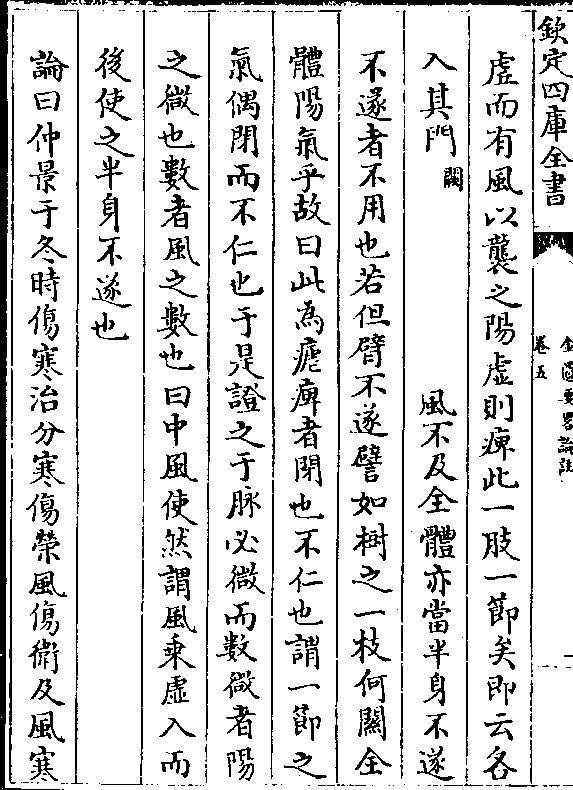 欽定四庫全書
金匱要畧論註
卷五
虚而有風以襲之陽虚則痺此一肢一節矣即云各
入其門闕　風不及全體亦當半身不遂
不遂者不用也若但臂不遂譬如樹之一枝何關全
體陽氣乎故曰此為瘧痺者閉也不仁也謂一節之
氣偶閉而不仁也于是證之于脉必微而數微者陽
之微也數者風之數也曰中風使然謂風乘虚入而
後使之半身不遂也
論曰仲景于冬時傷寒治分寒傷榮風傷衛及風寒